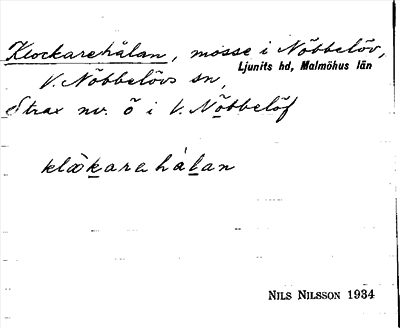 Klockarehålan, mosse i Nöbbelöv,
Ljunits hd, Malmöhus län
V. Nöbbelövs sn,
Strax nv. ö i V. Nöbbelöf
klåkarehålan
NILS NILSSON 1934